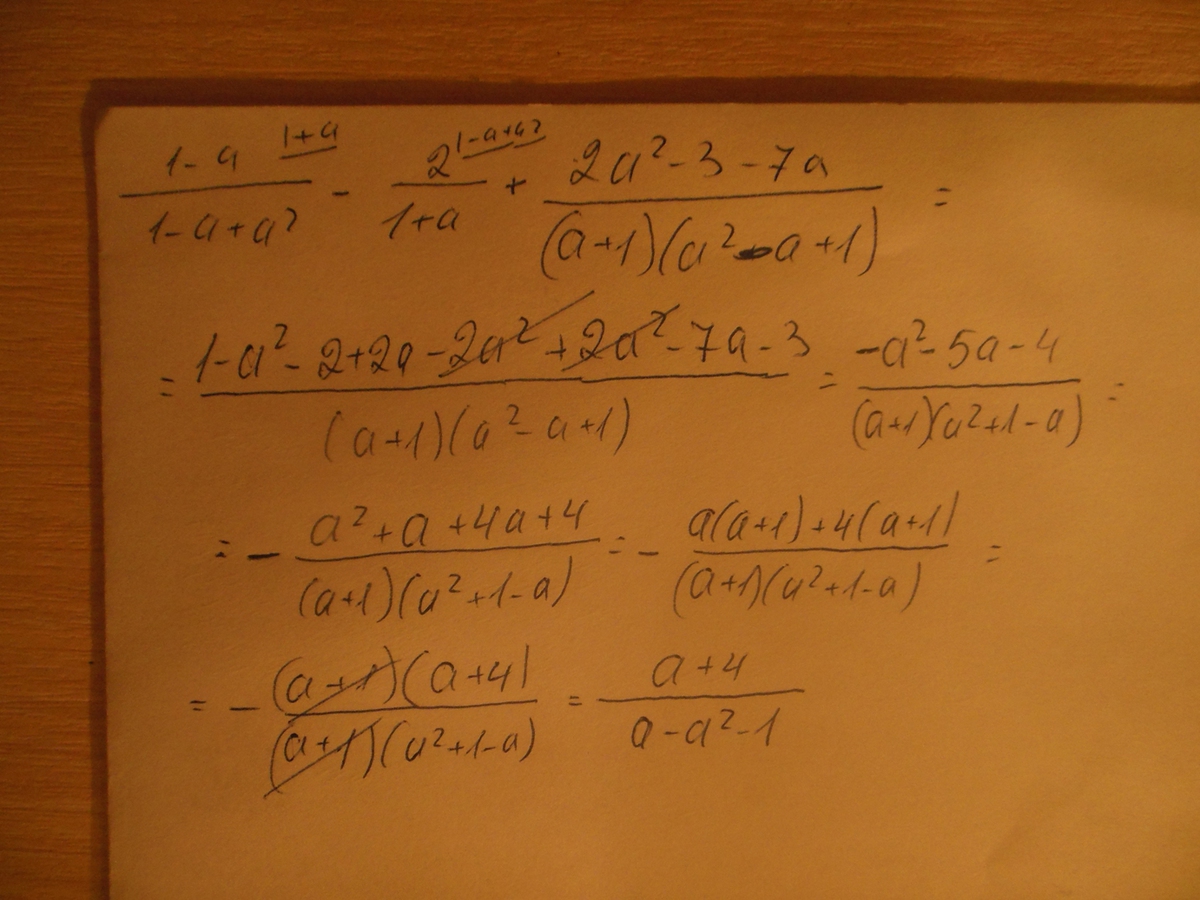 (1-a)/(1-a+a²) ^(1+a) - 2/(1+a) ^(1-a+a²) + (2a²-3-7a)/((a+1)(a²-a+1)) =
= (1-a²-2+2a-2a²+2a²-7a-3)/((a+1)(a²-a+1)) = (-a²-5a-4)/((a+1)(a²+1-a)) =
= - (a²+a+4a+4)/((a+1)(a²+1-a)) = - (a(a+1)+4(a+1))/((a+1)(a²+1-a)) =
= - ((a+1)(a+4))/((a+1)(a²+1-a)) = (a+4)/(a-a²-1)